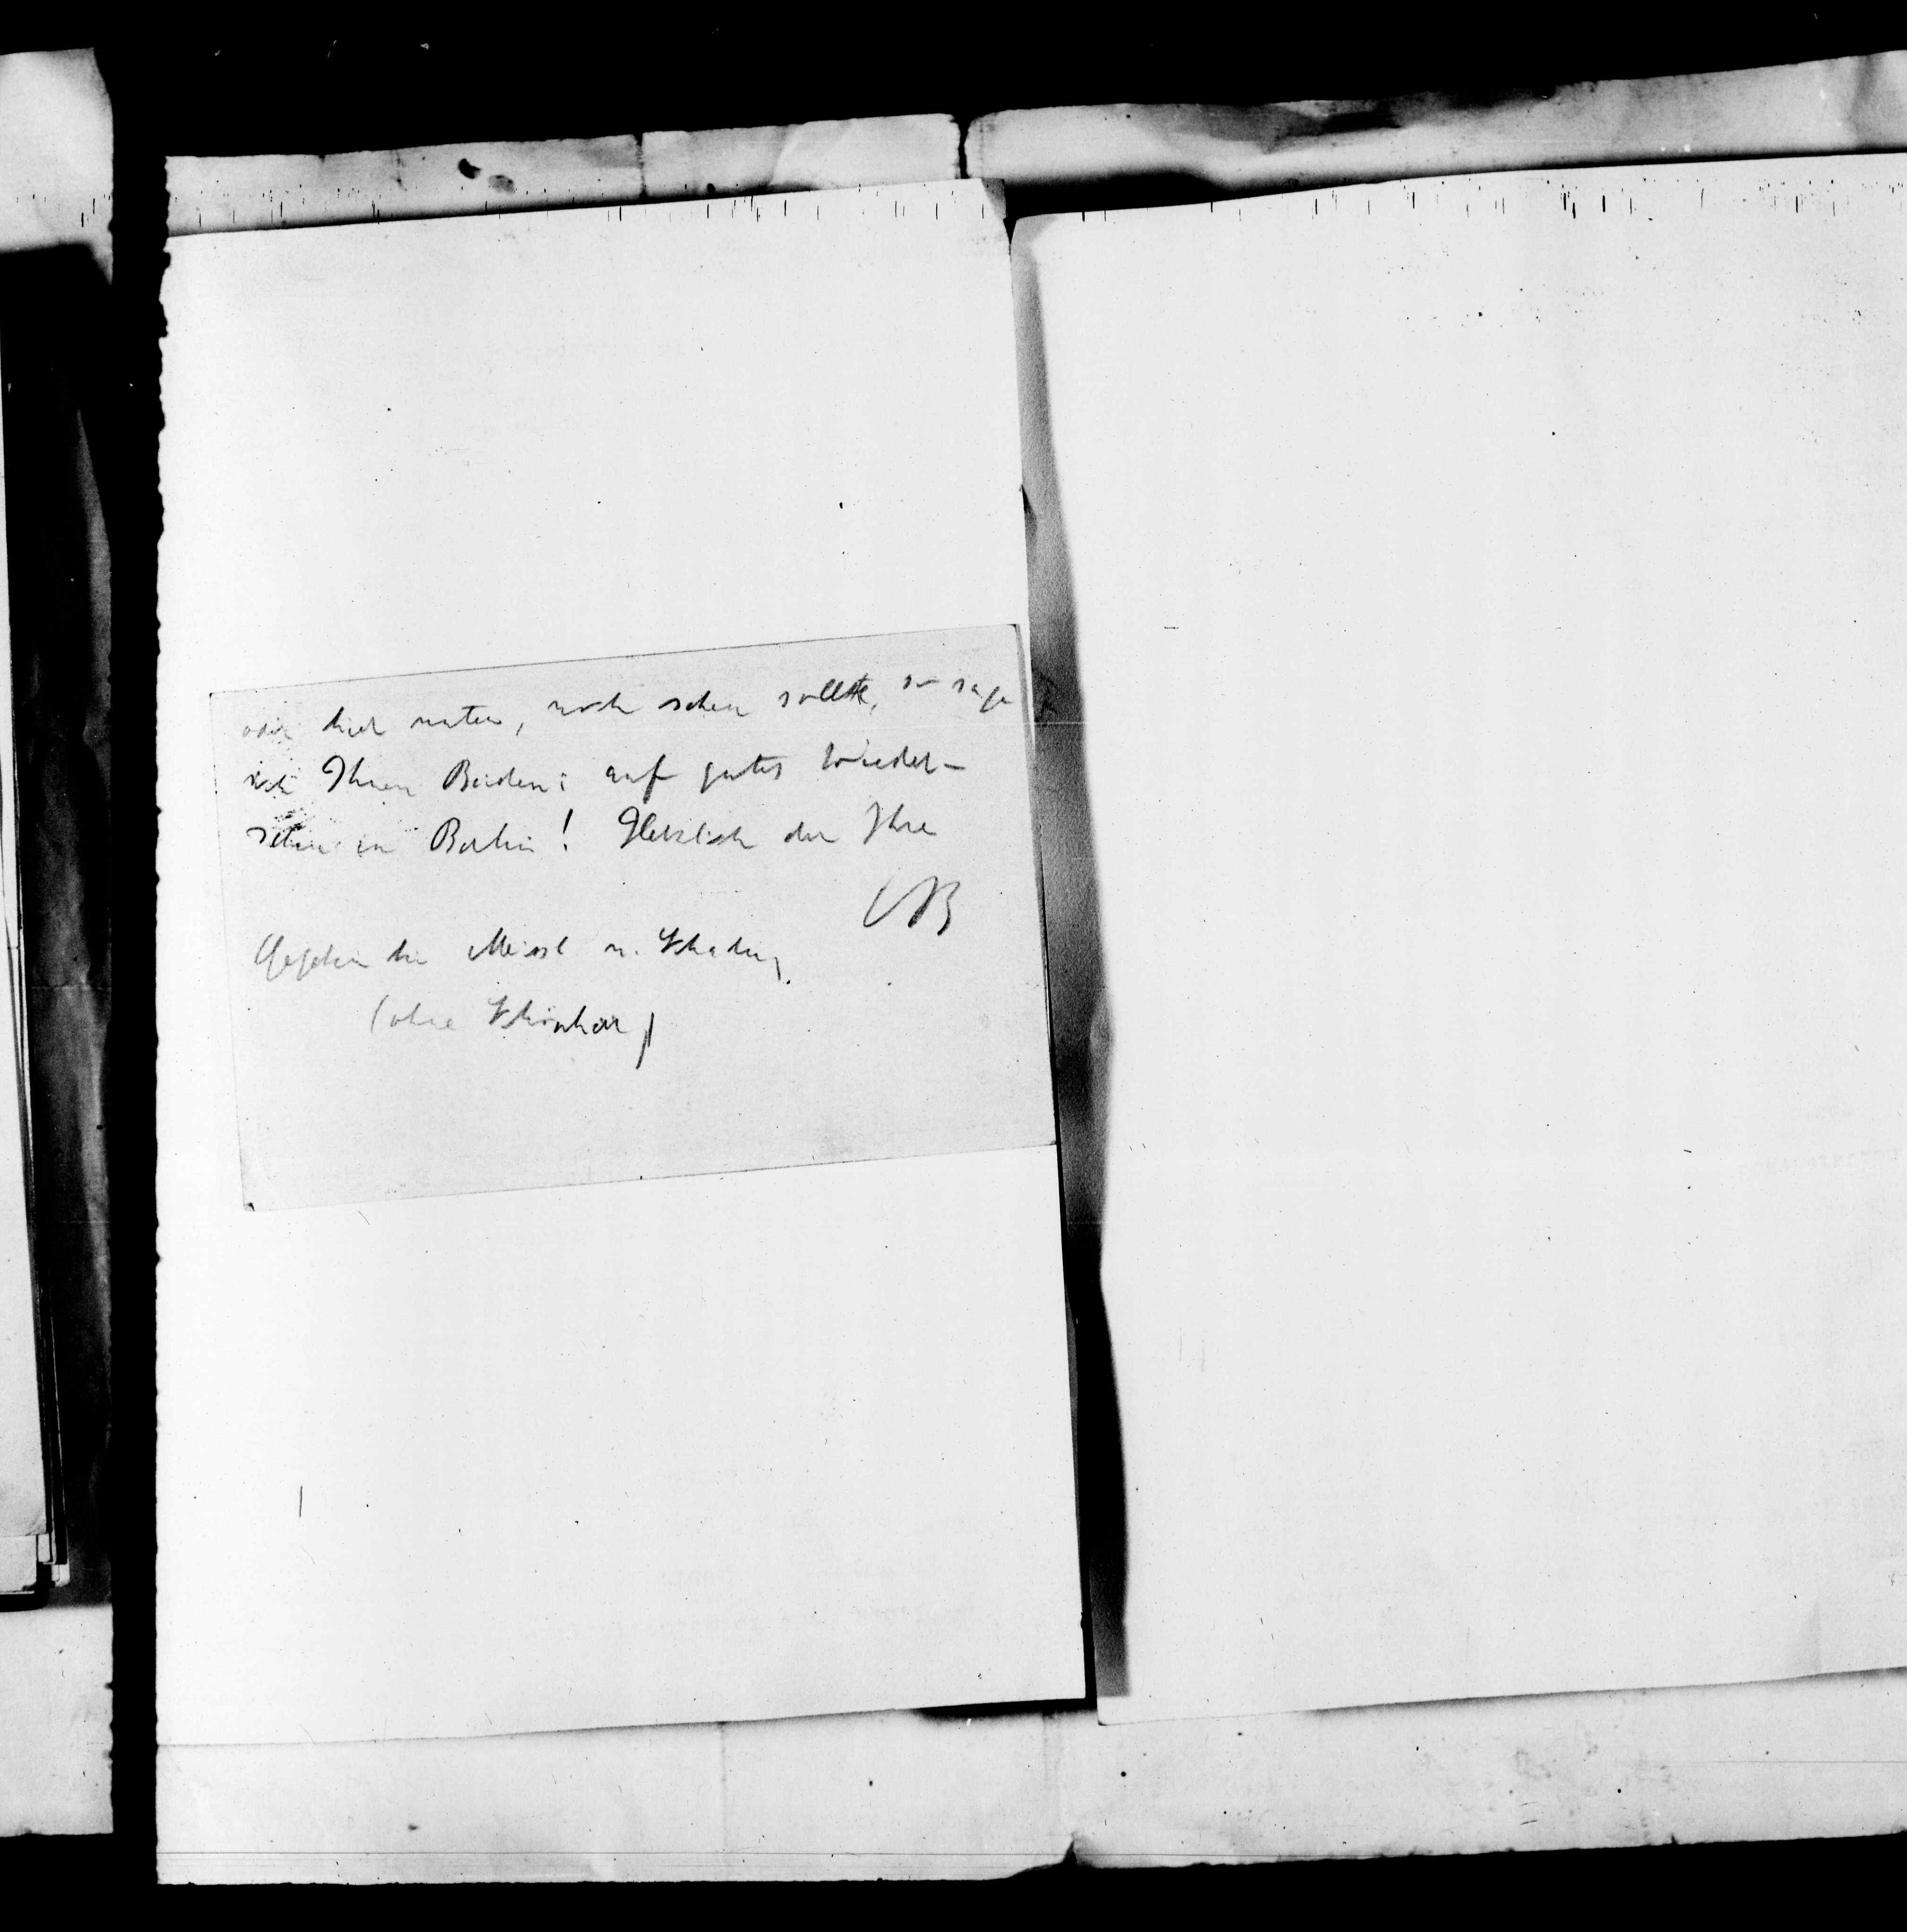 oder hier unten, noch sehen sollte, so sage
ich Ihnen Beiden: auf gutes Wieder-
sehen in Berlin! Herzlichst der Ihre
Gegeben bei Meissl u. Schadn
(ohne